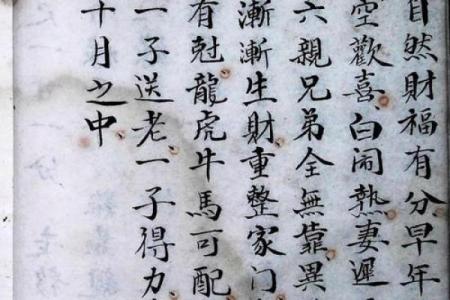 自然財福有分早年
空歡喜白闹热妻遲
六親兄弟全無靠異
漸漸生財重整家门
有尅龍虎牛馬可配
一子送老一子得力
十月之中